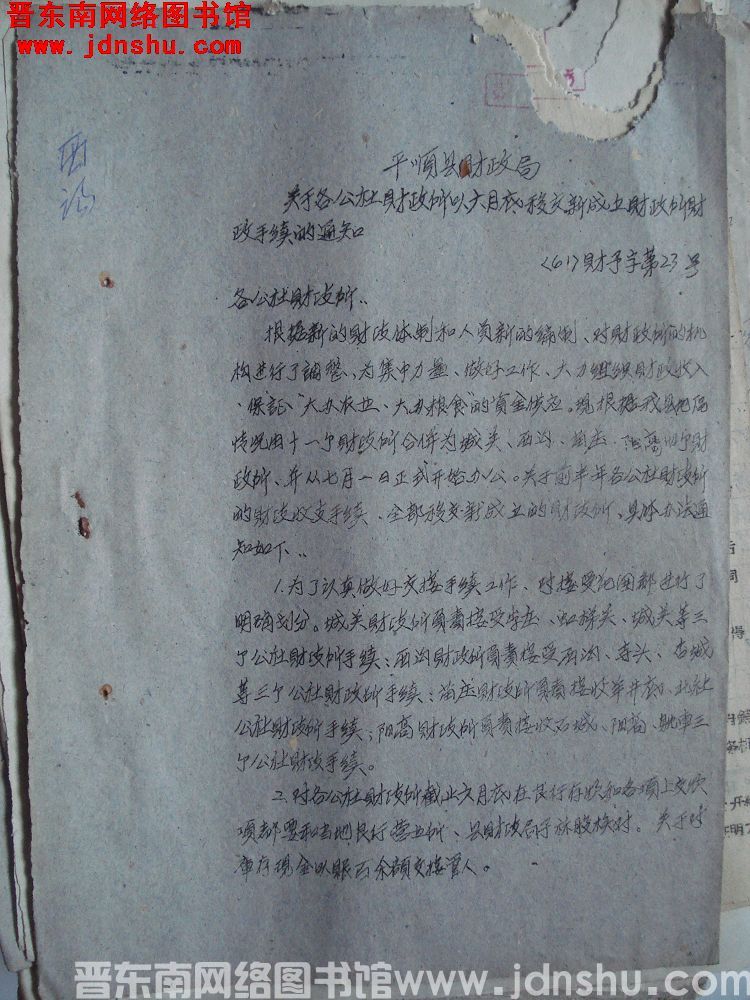 晋东南网络图书馆
www.jdnshu.com
平顺县财政局
关于各公社财政所以六月底移交新成立财政所财
政手续的通知
〈61〉财予字第23号
各公社财政所：
根据新的财政体制和人员新的编制、对财政所的机
构进行了調整、为集中力量、做好工作、大力组织财政收入
、保証“大办农业、大办粮食”的資金供应。现根据我县
情况由十一个财政所合併为城关、西沟、 阳高四个财
政所、并从七月一日正式开始办公。关于前半年各公社财政所
的财政收支手续、全部移交新成立的财政所、具体办法通
知如下：
1.为了认真做好交接手续工作、对接受范围都进行了
明确划分。城关财政所負責接受 、虹梯关、城关等三
个公社财政所手续；西沟财政所負責接受西沟、寺头、
等三个公社财政所手续； 财政所負責接收 、北社
公社财政所手续；阳高财政所負責接收石城、阳高、 三
个公社财政手续。
2.对各公社财政所截止六月底在民行存款和各項上交款
項都要和当地民行营业所、县财政局予 股核对。关于对
庫存现金以賬面余額交接 。
晋东南网络图书馆www.jdnshu.com